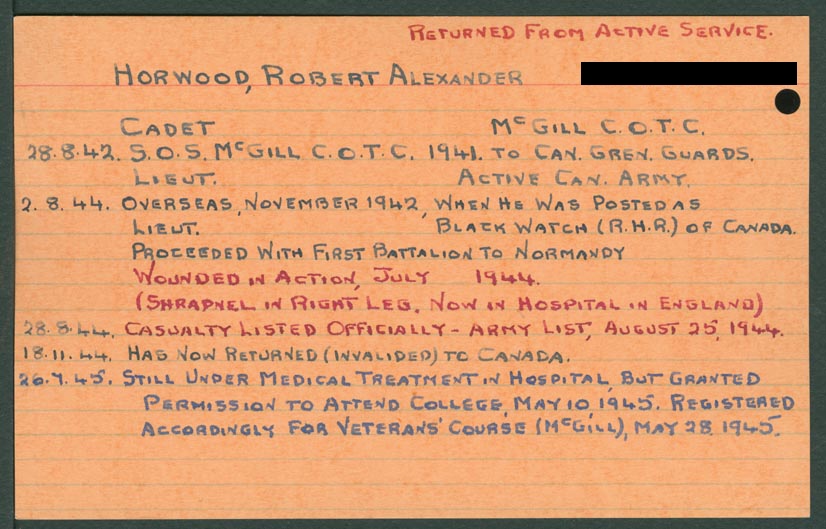 RETURNED FROM ACTIVE SERVICE.
HORWOOD, ROBERT ALEXANDER
CADET McGILL C.O.T.C.
28.8.42. S.O.S. McGILL C.O.T.C. 1941. TO CAN. GREN. GUARDS.
LIEUT. ACTIVE CAN. ARMY.
2.8.44. OVERSEAS, NOVEMBER 1942, WHEN HE WAS POSTED AS
LIEUT. BLACK WATCH (R.H.R.) OF CANADA.
PROCEEDED WITH FIRST BATTALION TO NORMANDY
WOUNDED IN ACTION, JULY 1944.
(SHRAPNEL IN RIGHT LEG. NOW IN HOSPITAL IN ENGLAND)
28.8.44. CASUALTY LISTED OFFICIALLY - ARMY LIST, AUGUST 25, 1944.
18.11.44. HAS NOW RETURNED (INVALIDED) TO CANADA.
26.7.45. STILL UNDER MEDICAL TREATMENT IN HOSPITAL, BUT GRANTED
PERMISSION TO ATTEND COLLEGE, MAY 10, 1945. REGISTERED
ACCORDINGLY FOR VETERANS' COURSE (McGILL), MAY 28, 1945.